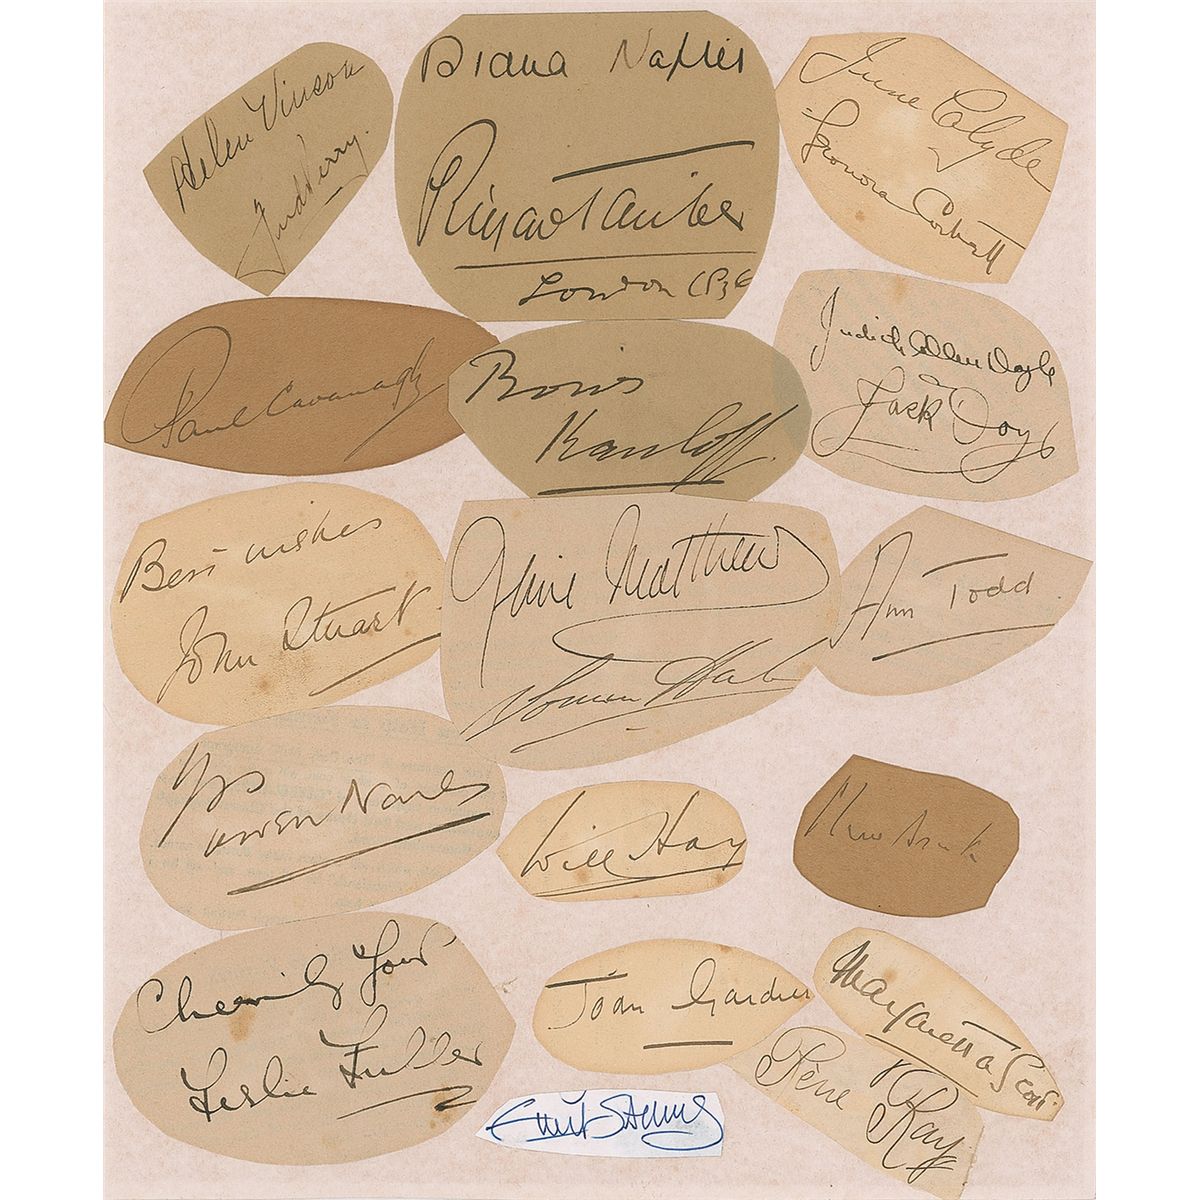 Helen Vinson
Fred Perry.
Diana Napier
Richard Tauber
London 1936
June Clyde
Leonora Corbett
Paul Cavanagh
Boris
Karloff
Judith Allen Doyle
&
Jack Doyle
Best wishes
John Stuart
Jessie Matthews
Sonnie Hale
Ann Todd
Yrs
Owen Nares
Will Hay
Cheerily Yours
Leslie Fuller
Joan Gardner
Margaretta Scott
René Ray